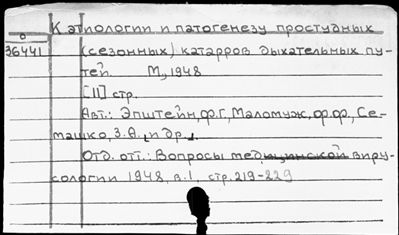 К этиологии и патогенезу простудных
О
36441
(сезонных) катарров дыхательных пу-
тей. М., 1948
[11] стр.
Авт.: Эпштейн, Ф.Г., Маломуж, Ф.Ф., Се-
машко, З.Я. [и др.].
Отд. отт.: Вопросы медицинской виру-
сологии 1948, в.1, стр. 219-229